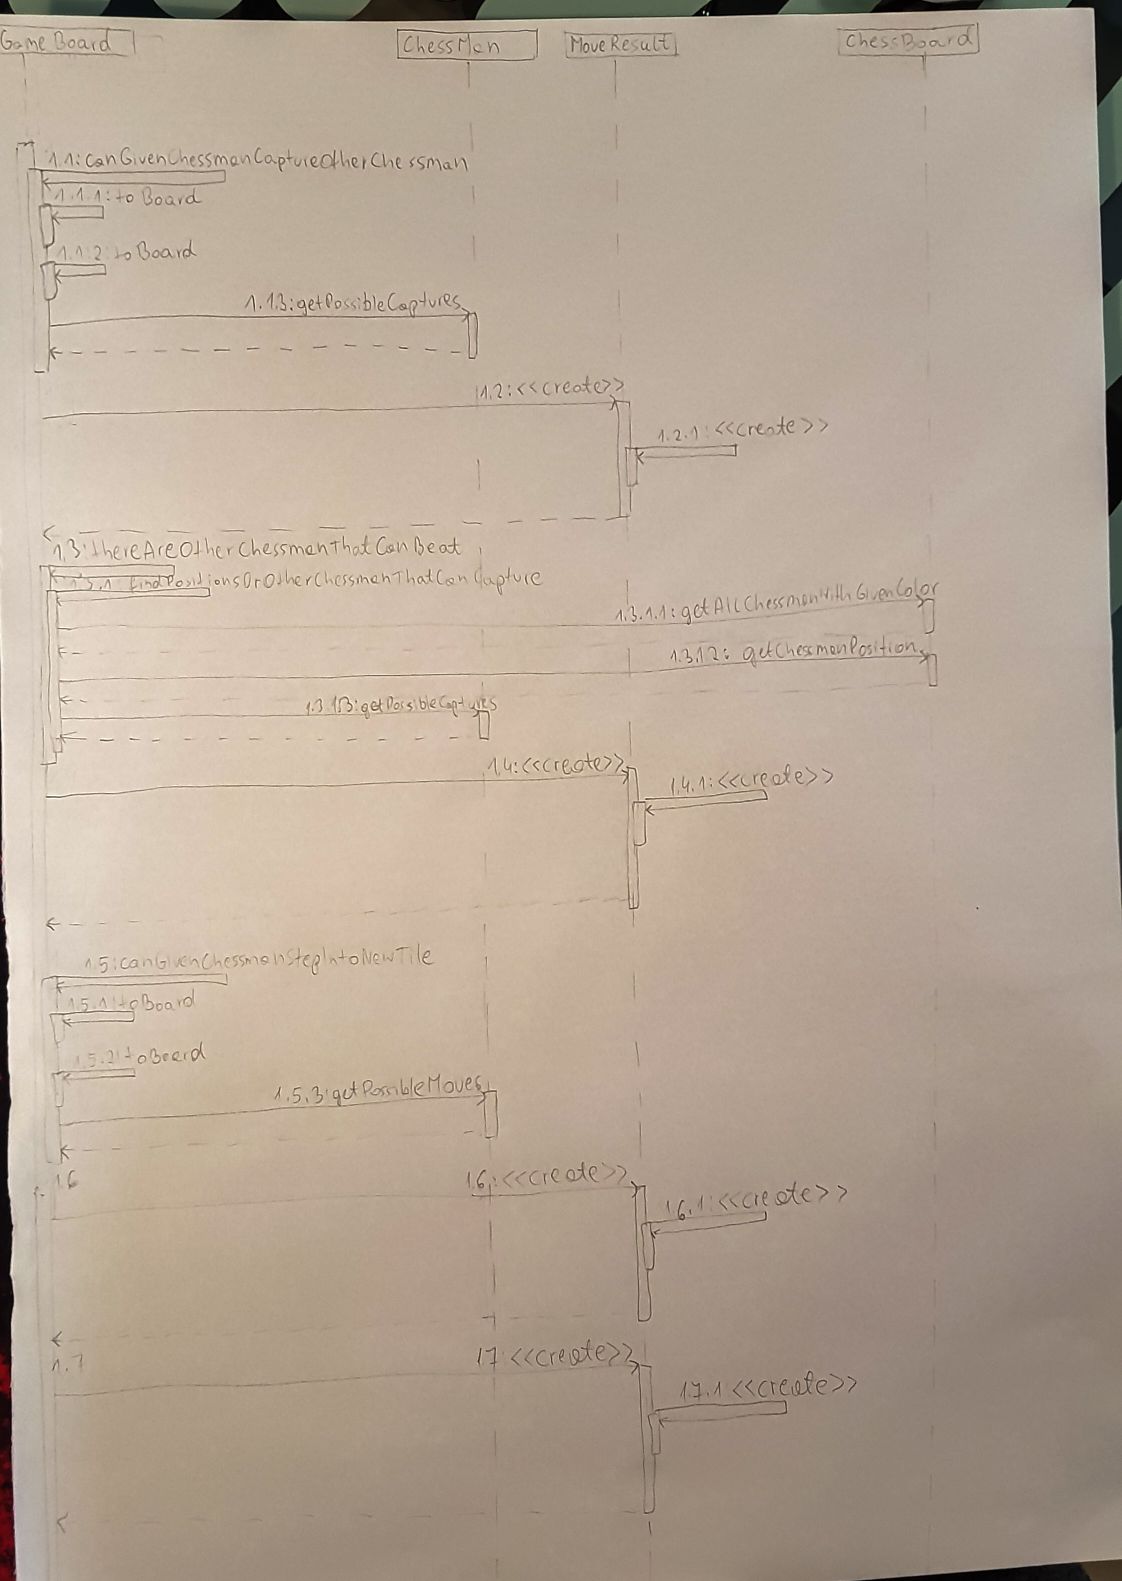 GameBoard
ChessMan
MoveResult
ChessBoard
1.1:canGivenChessmanCaptureOtherChessman
1.1.1:toBoard
1.1.2:toBoard
1.1.3:getPossibleCaptures
1.2:<<create>>
1.2.1:<<create>>
1.3:thereAreOtherChessmenThatCanBeat
1.3.1 findPositionsOrOtherChessmenThatCanCapture
1.3.1.1:getAllChessmenWithGivenColor
1.3.1.2: getChessmanPosition
1.3.1.3:getPossibleCaptures
1.4:<<create>>
1.4.1:<<create>>
1.5:canGivenChessmanStepIntoNewTile
1.5.1:toBoard
1.5.2:toBoard
1.5.3:getPossibleMoves
1.6
1.6:<<create>>
1.6.1:<<create>>
1.7
1.7 <<create>>
1.7.1 <<create>>